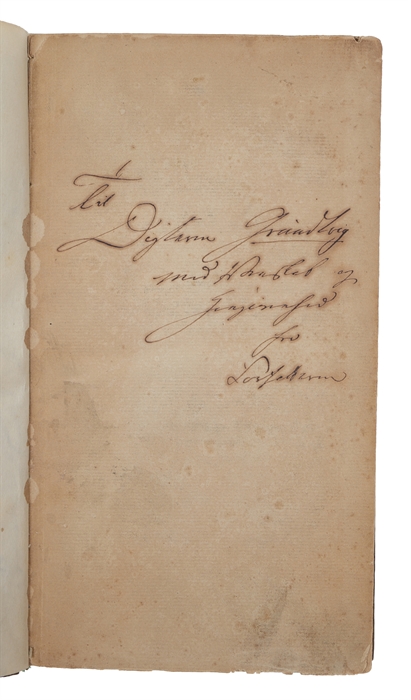 Til
Digteren Grundtvig
med Venskab og
Hengivenhed
fra
Forfatteren